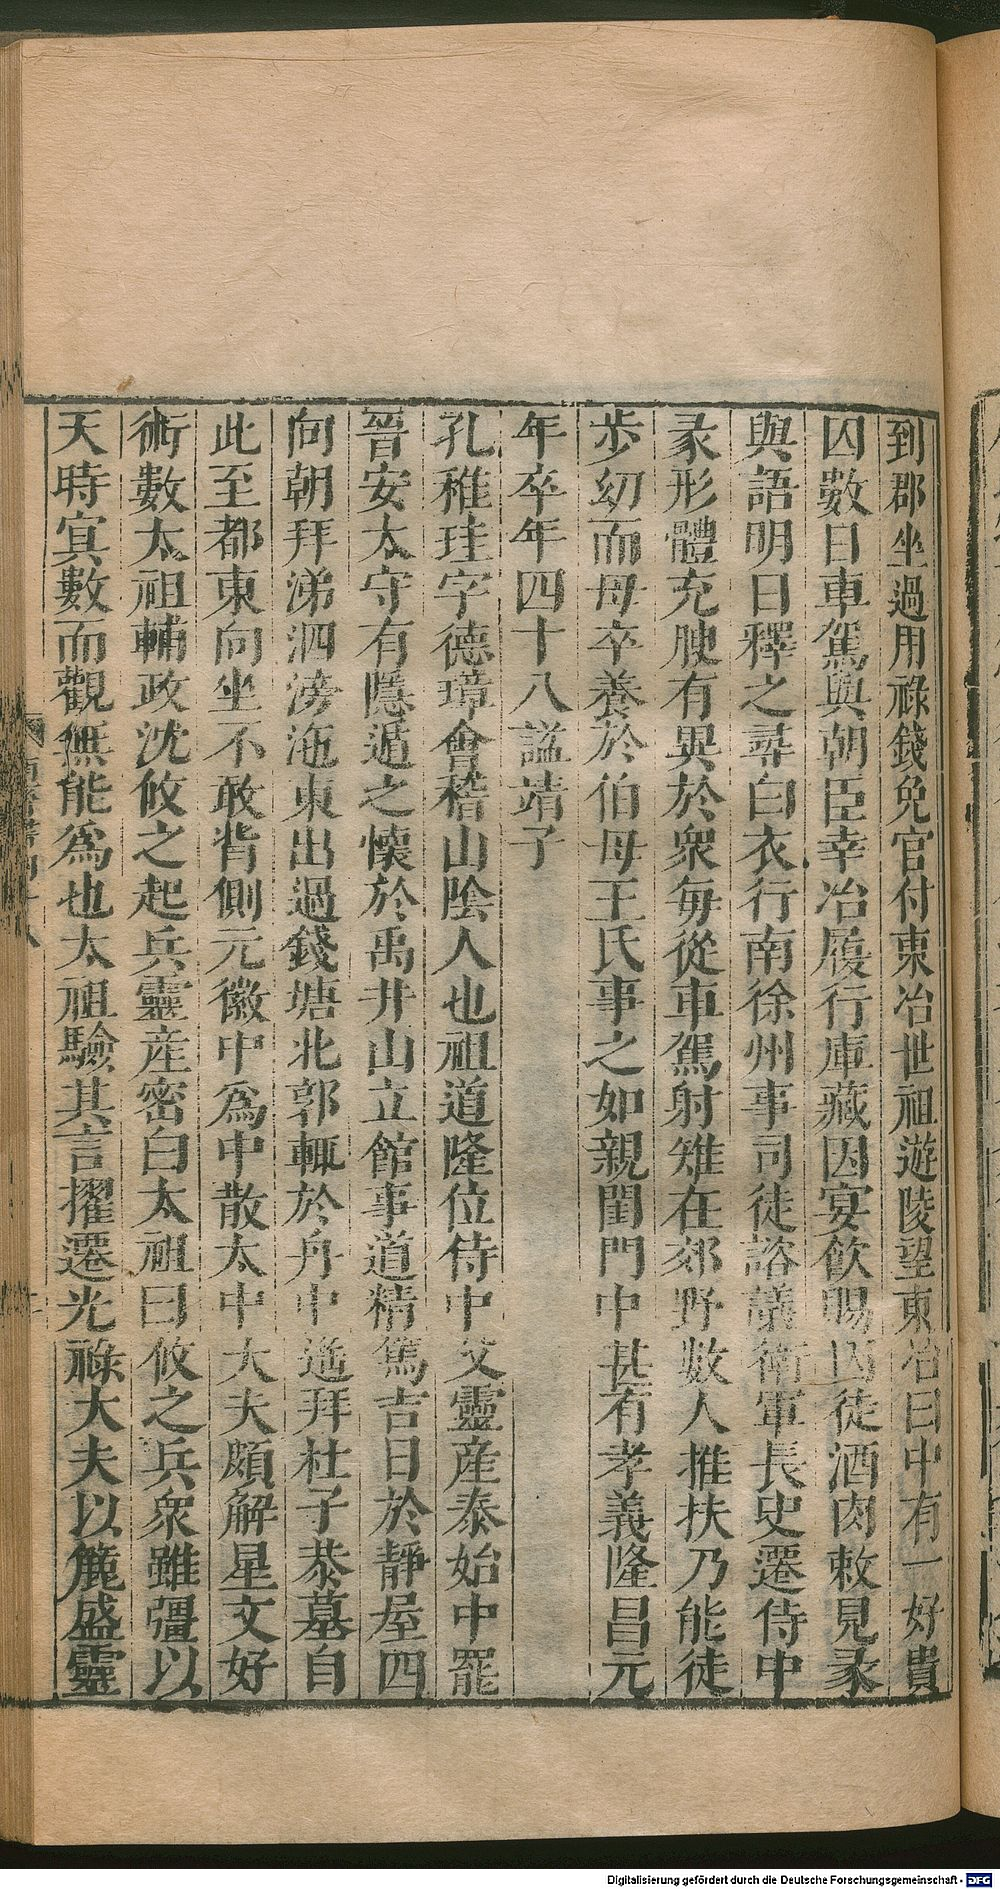 到郡坐過用祿錢免官付東冶世祖遊陵望東冶曰中有一好貴
囚數日車駕與朝臣幸冶履行庫藏因宴飲賜囚徒酒肉敕見彖
與語明日釋之尋白衣行南徐州事司徒諮議衛軍長史遷侍中
彖形體充腴有異於衆每從車駕射雉在郊野數人推扶乃能徒
步幼而母卒養於伯母王氏事之如親閨門中甚有孝義隆昌元
年卒年四十八諡靖子
孔稚珪字德璋會稽山陰人也祖道隆位侍中父靈產泰始中罷
晉安太守有隱遁之懷於禹井山立館事道精篤吉日於靜屋四
向朝拜涕泗滂沲東出過錢塘北郭輒於舟中遙拜杜子恭墓自
此至都東向坐不敢背側元徽中爲中散太中大夫頗解星文好
術數太祖輔政沈攸之起兵靈產密白太祖曰攸之兵衆雖彊以
天時冥數而觀無能爲也太祖驗其言擢遷光祿大夫以簏盛靈
Digitalisierung gefördert durch die Deutsche Forschungsgemeinschaft - DFG